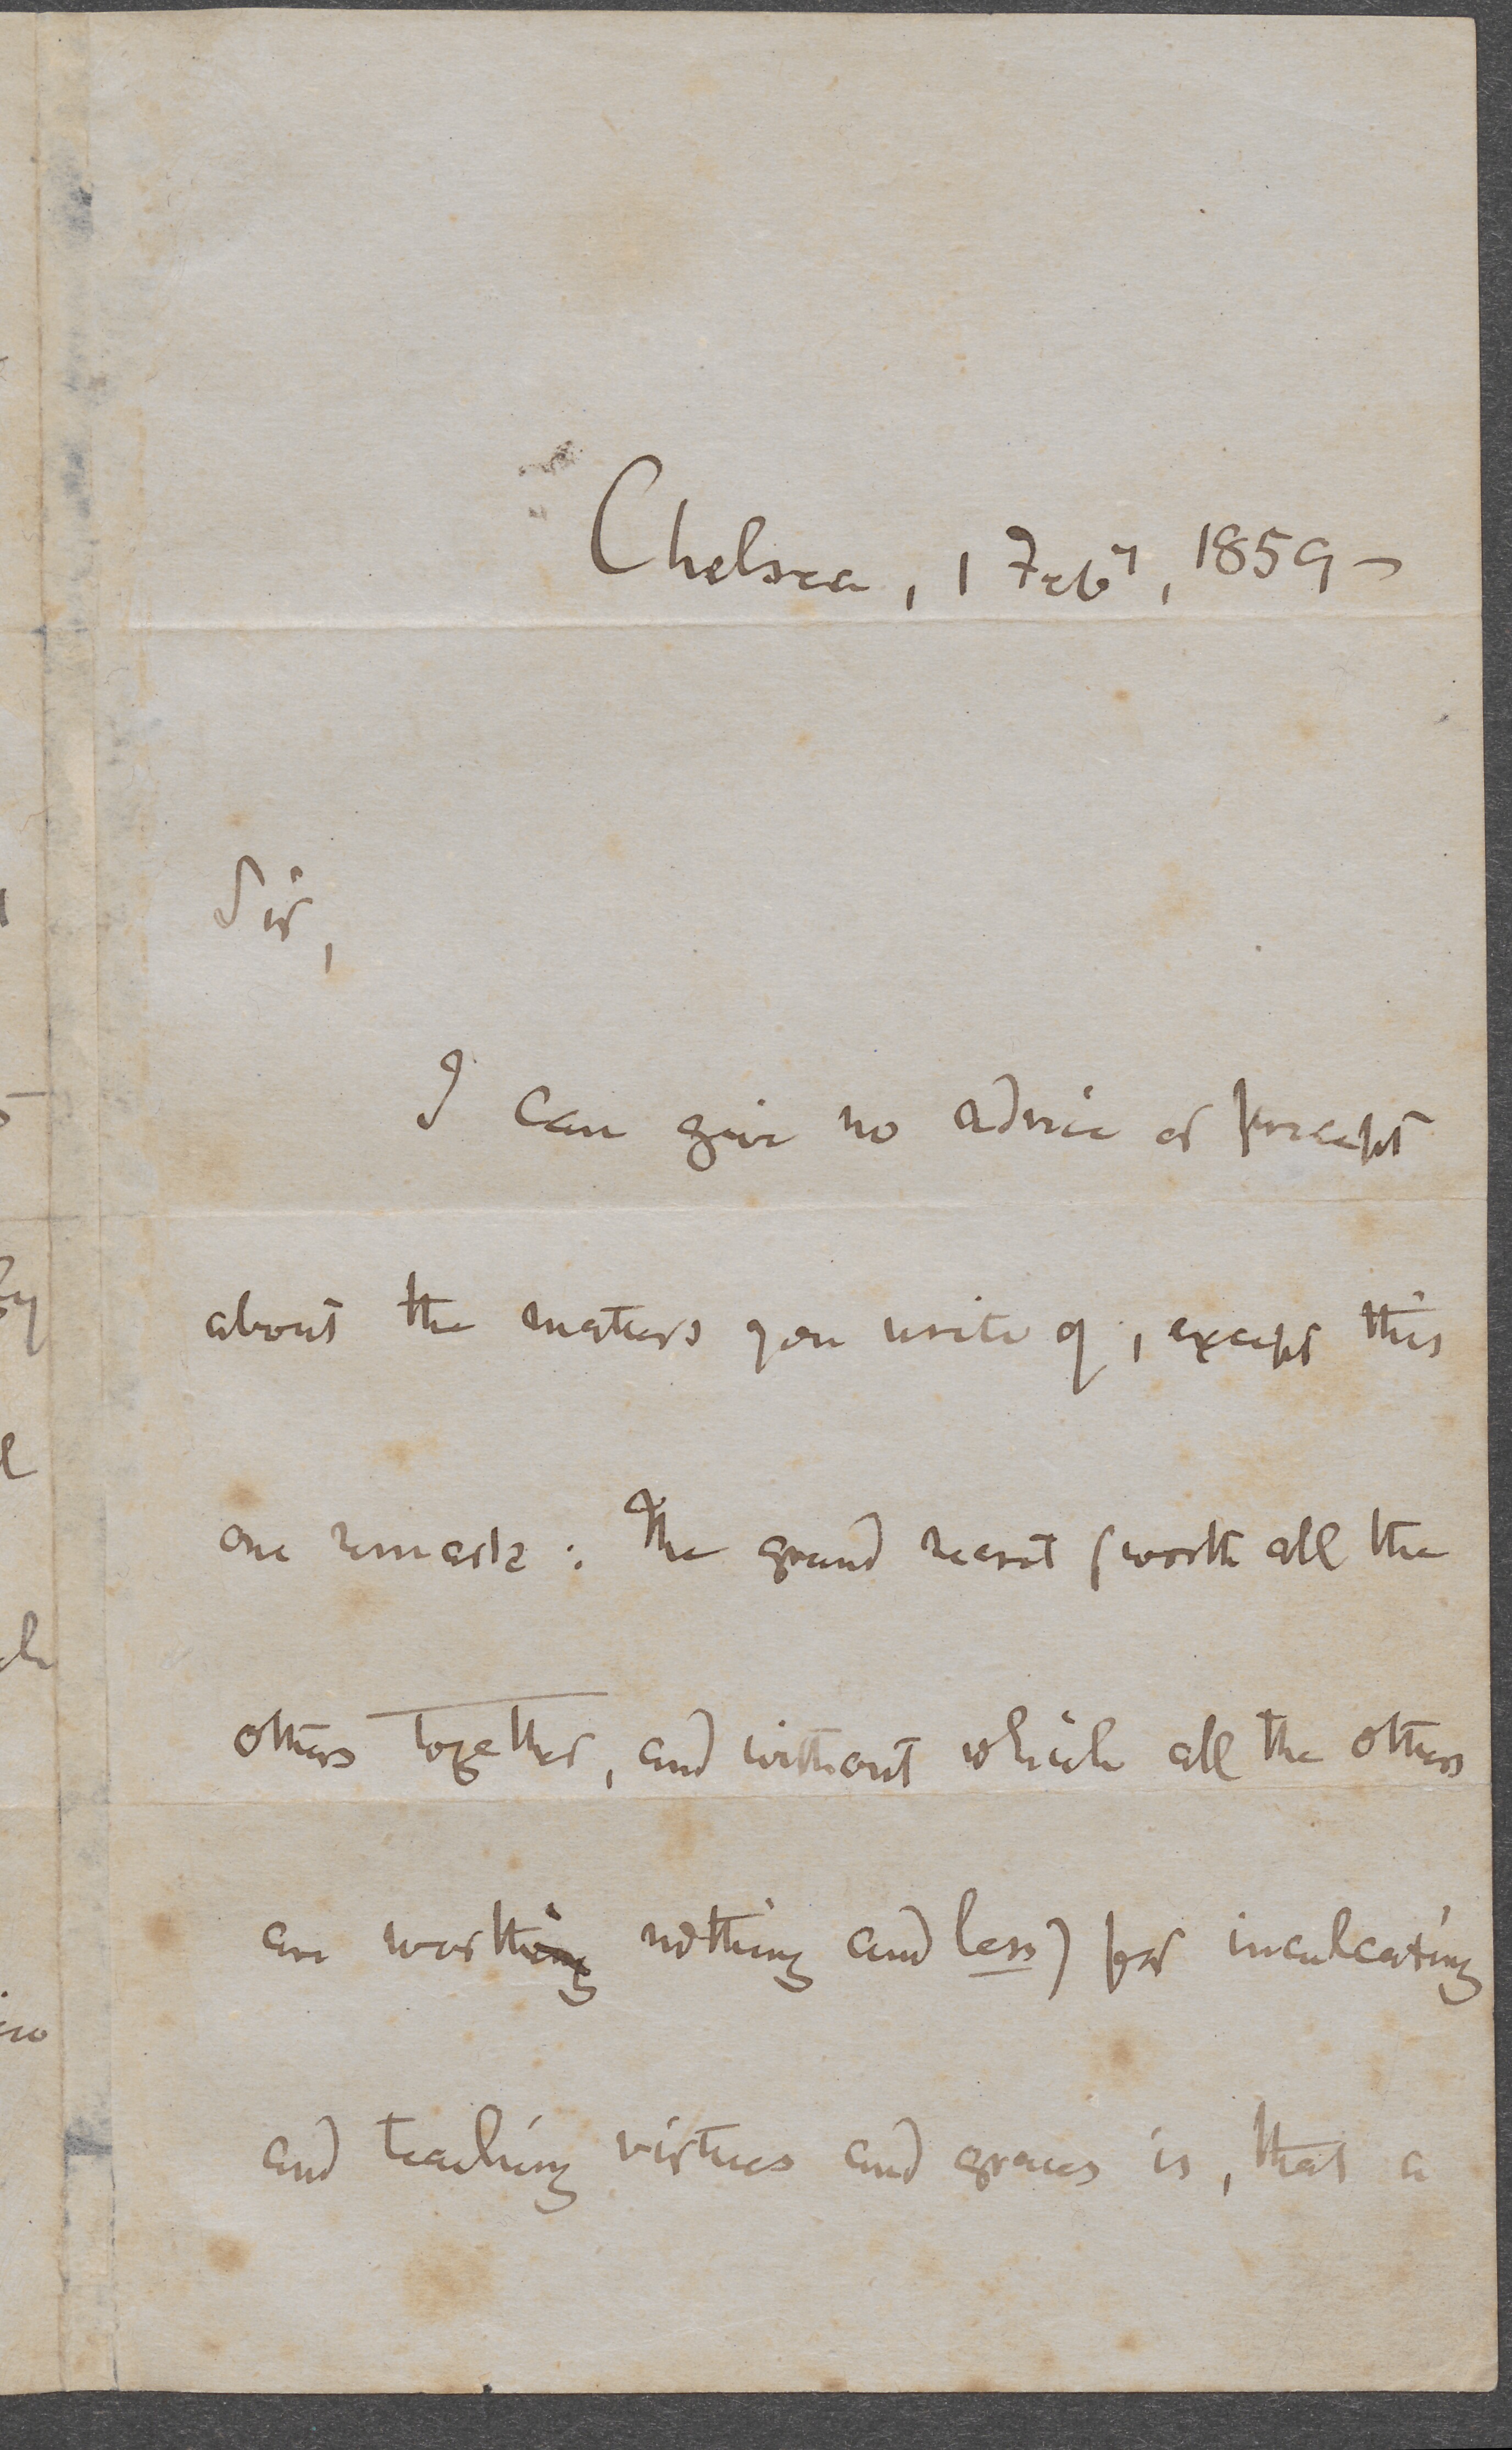 Chelsea, 1 Feby, 1859 –
Sir,
I can give no advice or precept
about the matters you write of, except this
one remark: The grand secret (worth all the
others together, and without which all the others
are worth nothing and less) for inculcating
and teaching virtues and graces is, that a